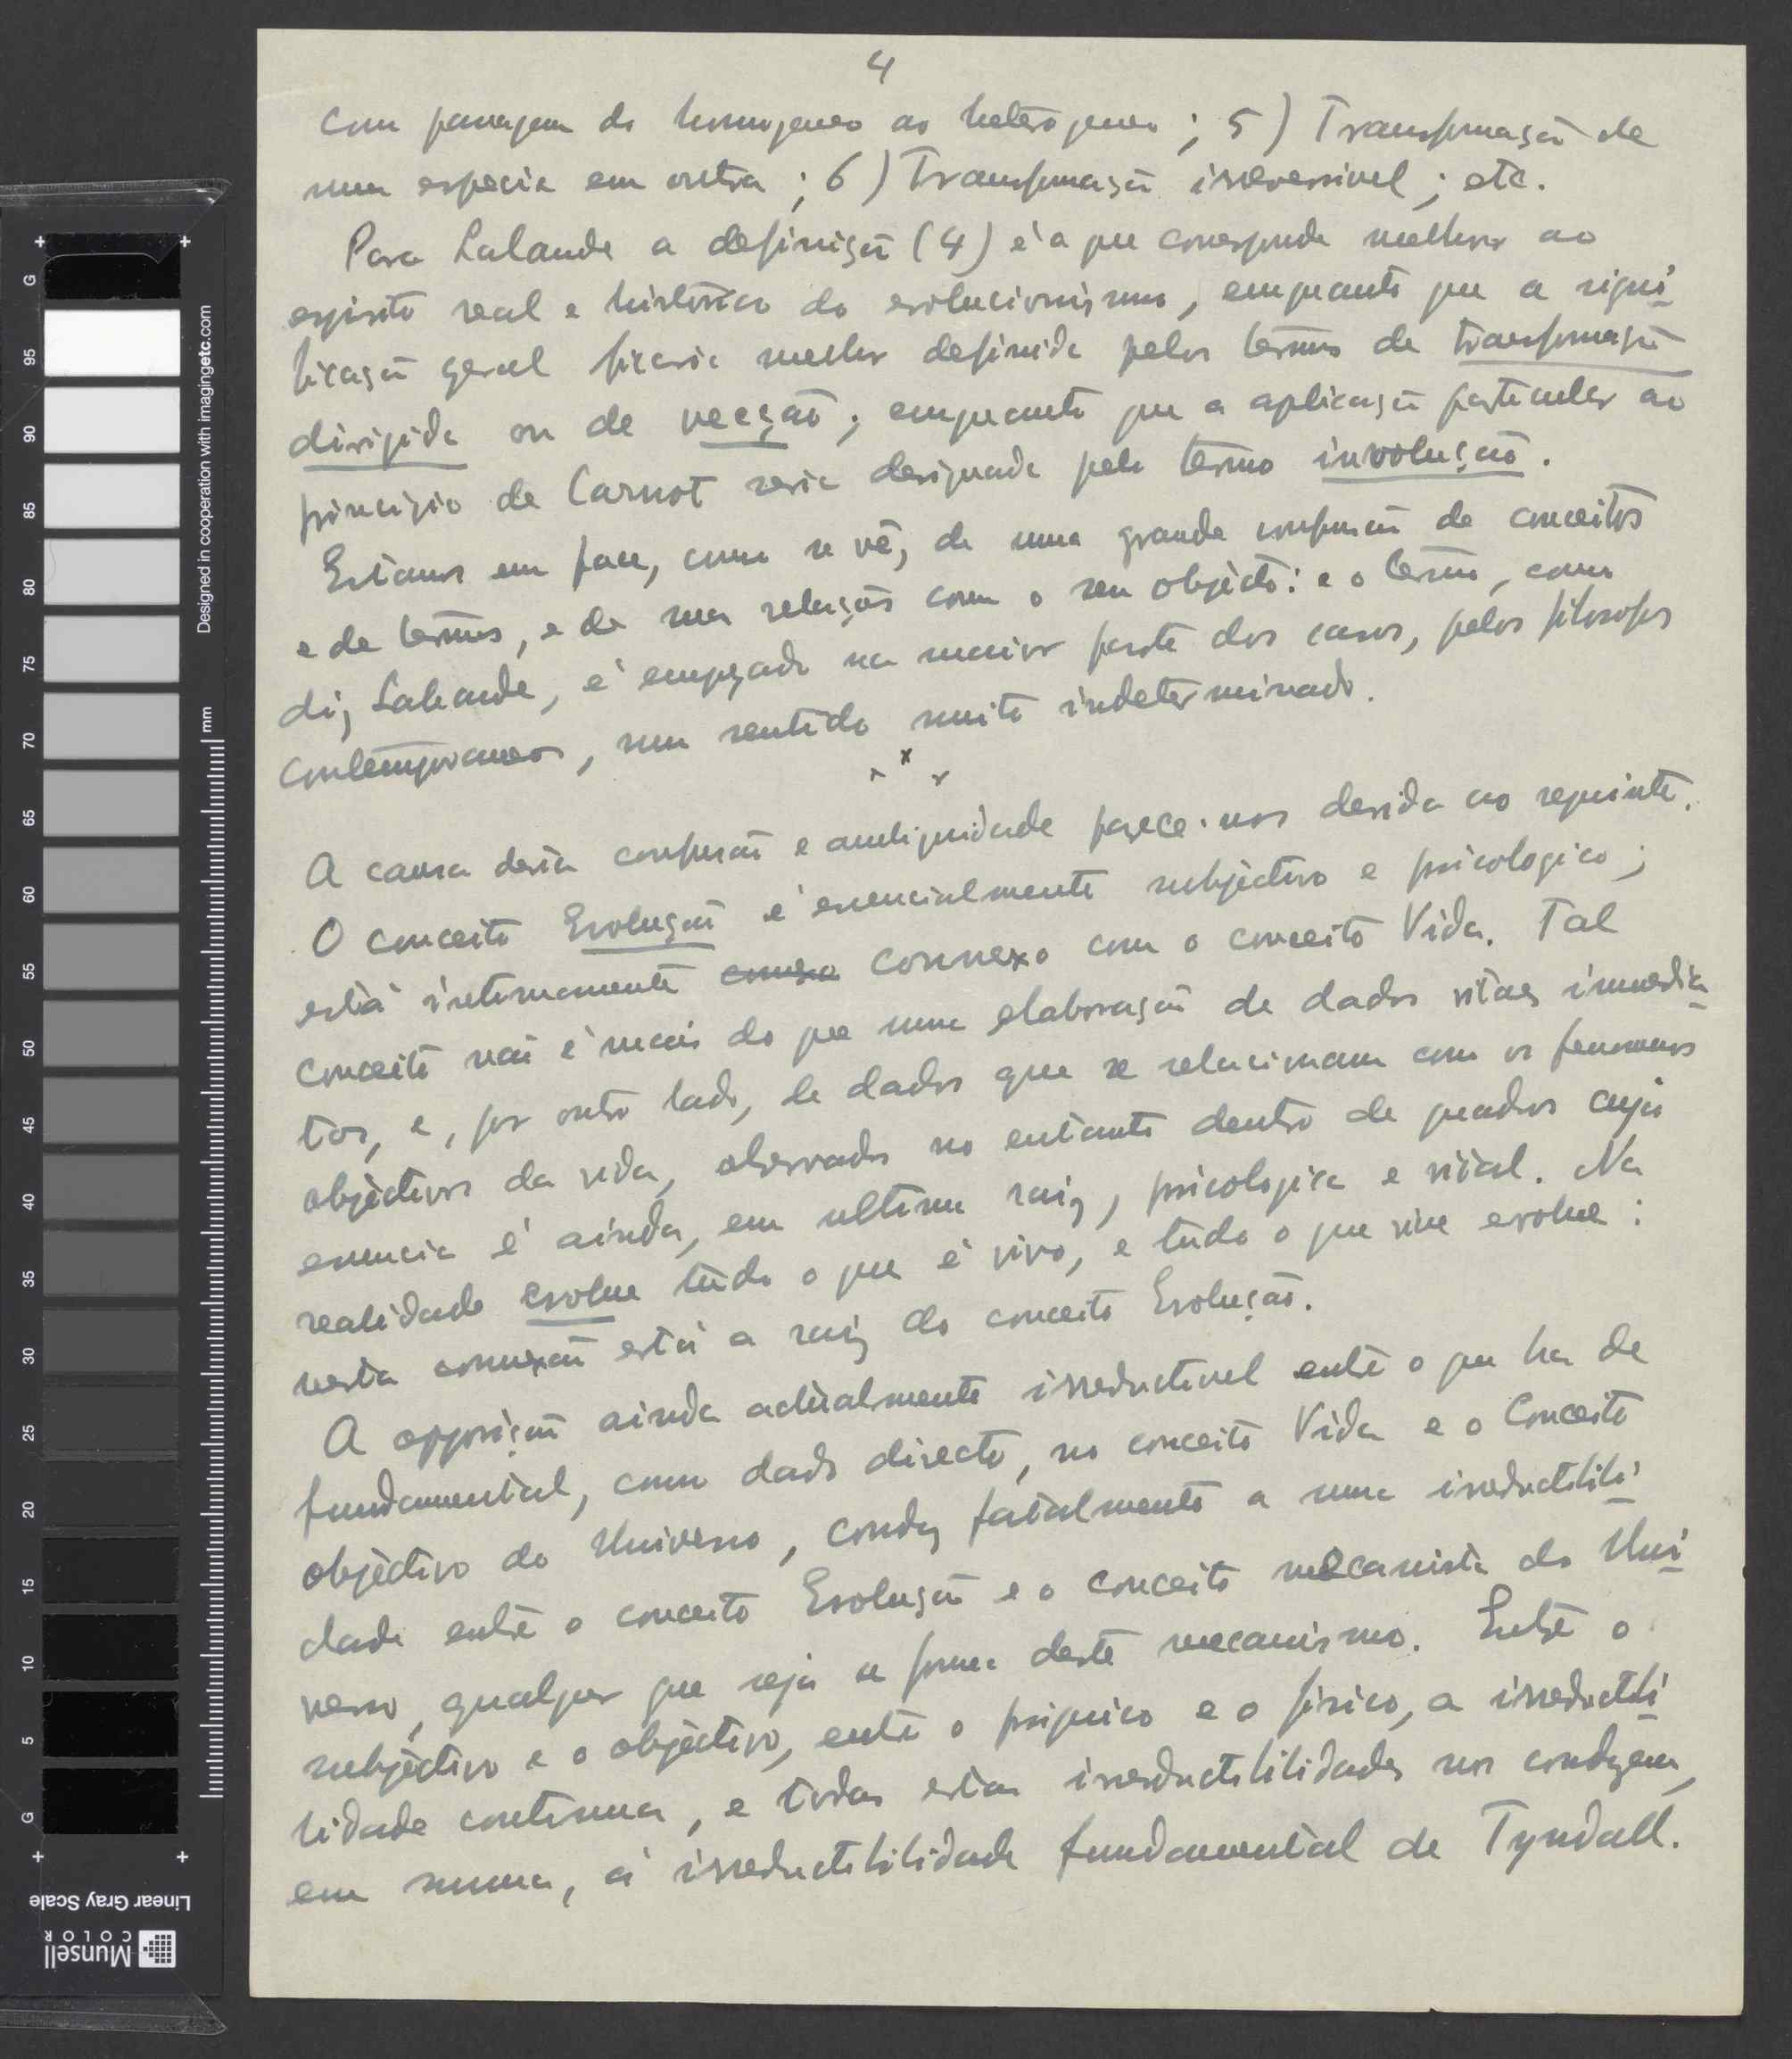 4
com passagem do homogeneo ao heterogeneo ; 5) Transformação de
uma especie em outra ; 6) Transformação irreversivel ; etc.
Para Lalande a definição (4) é a que corresponde melhor ao
espirito real e histórico do evolucionismo, emquanto que a signi-
ficação geral ficaria melhor definida pelos termos de transformação
dirigida ou de vecção ; emquanto que a aplicação particular ao
principio de Carnot seria designada pelo termo involução.
Estamos em face, como se vê, de uma grande confusão de conceitos
e de termos, e da sua relação com o seu objecto: e o termo, como
diz Lalande, é empregado na maior parte dos casos, pelos filosofos
contemporaneos, num sentido muito indeterminado.
x x x
A causa desta confusão e ambiguidade parece-nos devida ao seguinte.
O conceito Evolução é essencialmente subjectivo e psicologico ;
está intimamente conexo connexo com o conceito Vida. Tal
conceito não é mais do que uma elaboração de dados vitaes immedia-
tos, e, por outro lado, de dados que se relacionam com os fenomenos
objectivos da vida, observados no entanto dentro de quadros cuja
essencia é ainda, em ultima raiz, psicologica e vital. Na
realidade evolue tudo o que é vivo, e tudo o que vive evolue :
nesta connexão está a raiz do conceito Evolução.
A opposição ainda actualmente irreductivel entre o que ha de
fundamental, como dado directo, no conceito Vida e o Conceito
objectivo do Universo, conduz fatalmente a uma irreductibili-
dade entre o conceito Evolução e o conceito mecanista do Uni-
verso, qualquer que seja a forma deste mecanismo. Entre o
subjectivo e o objectivo, entre o psiquico e o fisico, a irreductibi-
lidade continua, e todas estas irreductibilidades nos conduzem,
em summa, á irreductibilidade fundamental de Tyndall.
Designed in cooperation with imagingetc.com
mm
G
95
90
85
80
75
70
65
60
55
50
45
40
35
30
25
20
15
10
5
G
Linear Gray Scale
Munsell
COLOR